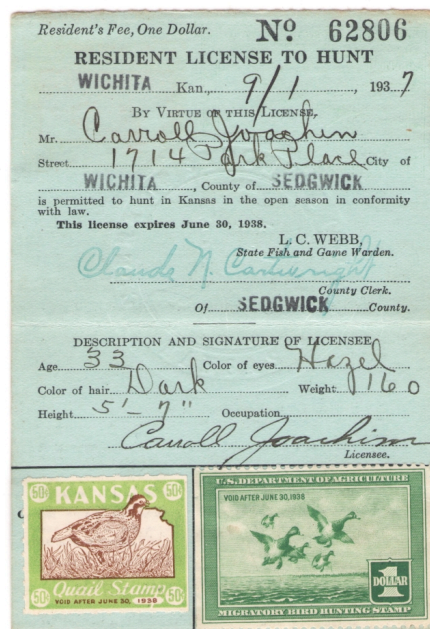 Resident's Fee, One Dollar. No 62806
RESIDENT LICENSE TO HUNT
WICHITA Kan., 9/1, 1937
BY VIRTUE OF THIS LICENSE,
Mr. Carroll Joachim
Street 1714 Park Place City of
WICHITA, County of SEDGWICK
is permitted to hunt in Kansas in the open season in conformity
with law.
This license expires June 30, 1938.
L. C. WEBB,
State Fish and Game Warden.
Claude N. Cartwright
County Clerk.
Of SEDGWICK County.
DESCRIPTION AND SIGNATURE OF LICENSEE
Age 33 Color of eyes Hazel
Color of hair Dark Weight 160
Height 5'-7" Occupation
Carroll Joachim
Licensee.
50¢ KANSAS 50¢
Quail Stamp
50¢ VOID AFTER JUNE 30, 1938 50¢
U.S. DEPARTMENT OF AGRICULTURE
VOID AFTER JUNE 30, 1938
1
DOLLAR
MIGRATORY BIRD HUNTING STAMP